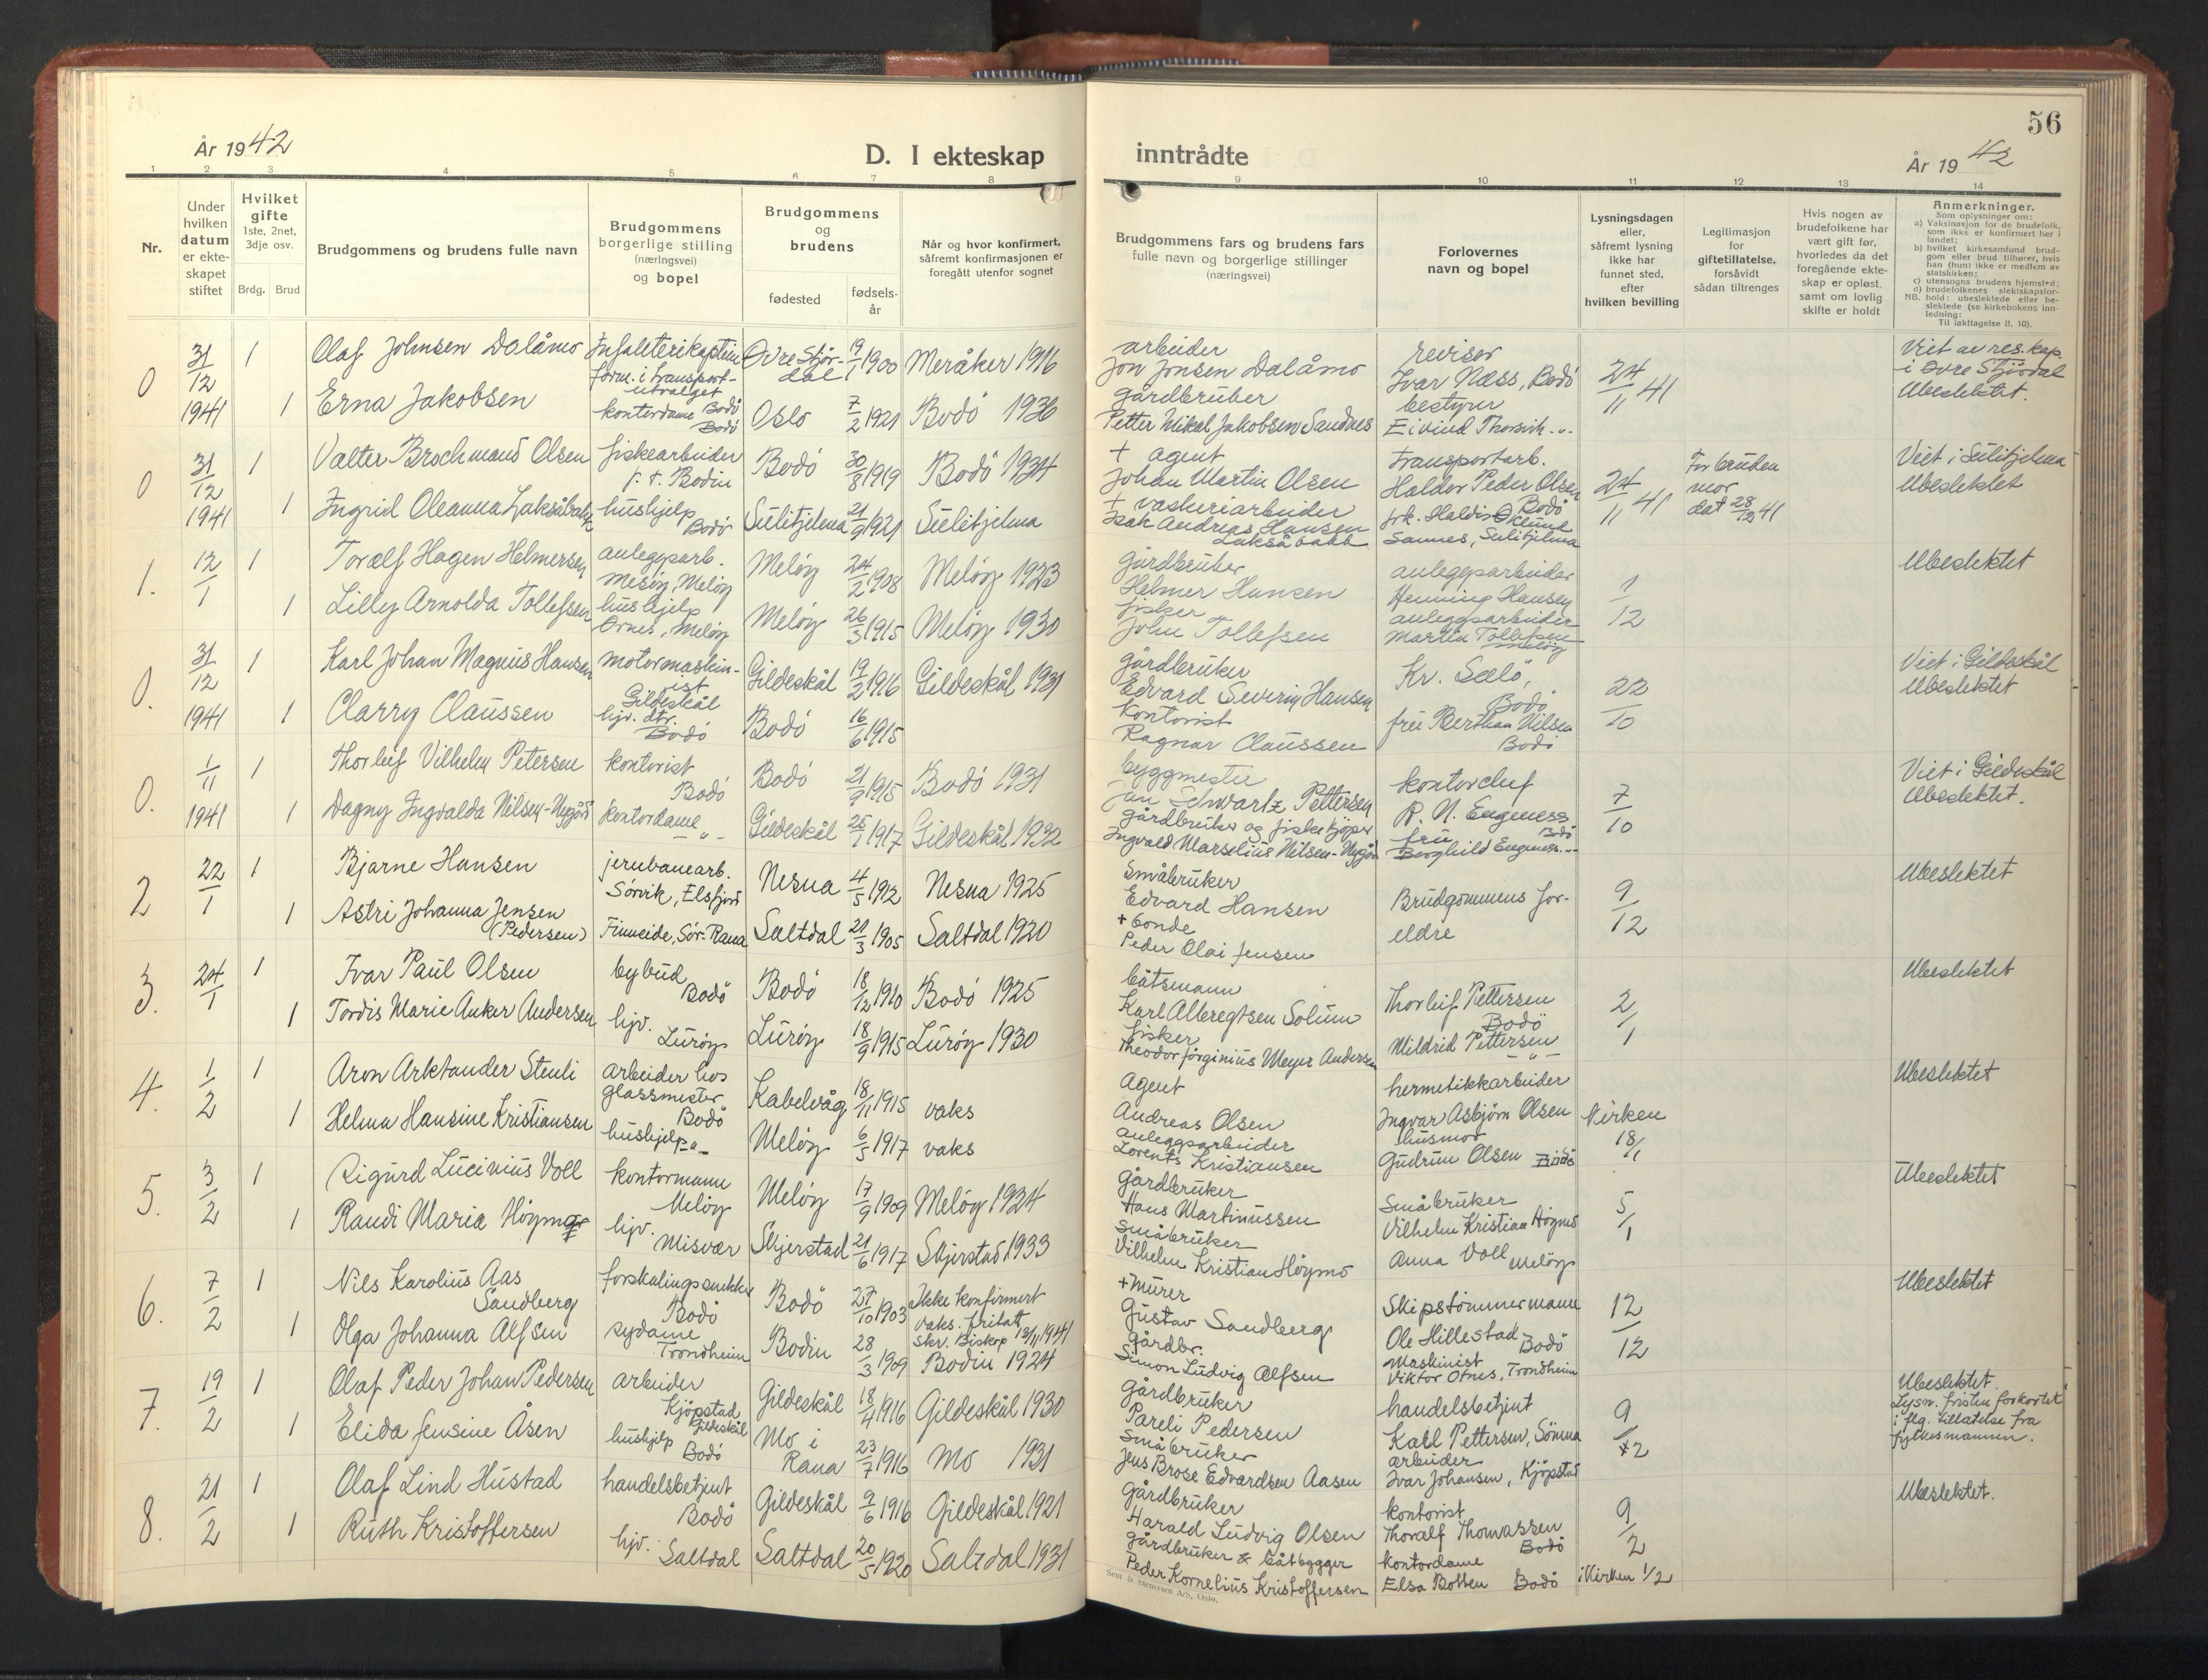 56
År 1942
D. I ekteskap
inntrådte
År 1942
1 2 3 4 5 6 7 8 9 10 11 12 13 14
Nr.
Under hvilken datum er ekteskapet stiftet
Hvilket gifte
1ste, 2net, 3dje osv.
Brdg. Brud
Brudgommens og brudens fulle navn
Brudgommens borgerlige stilling (næringsvei) og bopel
Brudgommens og brudens
fødested
fødselsår
Når og hvor konfirmert, såfremt konfirmasjonen er foregått utenfor sognet
Brudgommens fars og brudens fars fulle navn og borgerlige stillinger (næringsvei)
Forlovernes navn og bopel
Lysningsdagen eller, såfremt lysning ikke har funnet sted, efter hvilken bevilling
Legitimasjon for giftetillatelse, forsåvidt sådan tiltrenges
Hvis nogen av brudefolkene har vært gift før, hvorledes da det foregående ekteskap er opløst. samt om lovlig skifte er holdt
Anmerkninger.
Som oplysninger om:
a) Vaksinasjon for de brudefolk, som ikke er konfirmert her i landet;
b) hvilket kirkesamfund brudgom eller brud tilhører, hvis han (hun) ikke er medlem av statskirken;
c) utensogns brudens hjemsted;
d) brudefolkenes slektskapsforhold: ubeslektede eller beslektede (se kirkebokens innledning:
NB.
Til iakttagelse II. 10).
0 31/12 1941 1 Olaf Johnsen Dalåmo Infanterikaptein form. i transportutvalget Bodö Övre Stjördal 19/1 1900 Meråker 1916 arbeider Jon Jonsen Dalåmo revisor Ivar Næss, Bodö 24/11 41 Viet av res.kap. i Övre Stjördal
1 Erna Jakobsen kontordame Bodö Oslo 7/2 1921 Bodö 1936 gårdbruker Petter Mikal Jakobsen Sandnes bestyrer Eivind Thorsvik -"- Ubeslektet.
0 31/12 1941 1 Valter Brochmand Olsen fiskearbeider p.t. Bodin Bodö 30/8 1919 Bodö 1934 + agent Johan Martin Olsen transportarb. Haldor Peder Olsen Bodö 24/11 41 For bruden mor dat 28/12 41 Viet i Sulitjelma Ubeslektet
1 Ingrid Oleanna Laksåbakk hushjelp Bodö Sulitjelma 21/9 1921 Sulitjelma + vaskeriarbeider Isak Andreas Hansen Laksåbakk frk. Haldis Öklund Sannes, Sulitjelma
1. 12/1 1 Toralf Hagen Helmersen anleggsarb. Mesöy, Melöy Melöy 24/2 1908 Melöy 1923 gårdbruker Helmer Hansen anleggsarbeider Henning Hansen 1/12 Ubeslektet
1 Lilly Arnolda Tollefsen hushjelp Örnes, Melöy Melöy 26/3 1915 Melöy 1930 fisker John Tollefsen anleggsarbeider Martin Tollefsen Melöy
0. 31/12 1941 1 Karl Johan Magnus Hansen motormaskinist Gildeskål Gildeskål 19/2 1916 Gildeskål 1931 gårdbruker Edvard Severin Hansen Kr. Sælö, Bodö 22/10 Viet i Gildeskål Ubeslektet
1 Clarry Claussen hjv. dtr. Bodö Bodö 16/6 1915 Kontorist Ragnar Claussen fru Berthan Nilsen Bodö
0. 1/11 1941 1 Thorleif Vilhelm Petersen kontorist Bodö Bodö 21/9 1915 Bodö 1931 byggmester Jan Schwartz Pettersen kontorchef R. N. Engeness Bodö 7/10 Viet i Gildeskål Ubeslektet.
1 Dagny Ingvalda Nilsen-Nygård kontordame -"- Gildeskål 25/1 1917 Gildeskål 1932 gårdbruker og fiskekjöper Ingvald Marselius Nilsen-Nygård fru Borghild Engeness -"-
2 22/1 1 Bjarne Hansen jernbanearb. Sörvik, Elsfjord Nesna 4/5 1912 Nesna 1925 Småbruker Edvard Hansen Brudgommens foreldre 9/12 Ubeslektet
1 Astri Johanna Jensen (Pedersen) Finneide, Sör-Rana Saltdal 21/3 1905 Saltdal 1920 + bonde Peder Olai Jensen
3. 24/1 1 Ivar Paul Olsen bybud Bodö Bodö 18/12 1910 Bodö 1925 båtsmann Karl Albregtsen Solum Thorleif Pettersen Bodö 2/1 Ubeslektet
1 Tordis Marie Anker Andersen hjv. Luröy Luröy 18/9 1915 Luröy 1930 fisker Theodor Jörginius Meyer Andersen Mildrid Pettersen -"-
4. 1/2 1 Aron Arktander Stenli arbeider hos glassmester Bodö Kabelvåg 18/11 1915 vaks Agent Andreas Olsen hermetikkarbeider Ingvar Asbjörn Olsen Kirken 18/1 Ubeslektet
1 Helma Hansine Kristiansen hushjelp -"- Melöy 6/5 1917 vaks anleggsarbeider Lorents Kristiansen husmor Gudrun Olsen Bodö
5. 3/2 1 Sigurd Lucinius Voll kontormann Melöy Melöy 17/9 1909 Melöy 1924 gårdbruker Hans Martinussen Småbruker Vilhelm Kristian Högmo 5/1 Ubeslektet
1 Randi Maria Högmo hjv. Misvær Skjerstad 21/6 1917 Skjerstad 1933 småbruker Vilhelm Kristian Högmo Anna Voll Melöy
6. 7/2 1 Nils Karolius Aas Sandberg forskalingssnekker Bodö Bodö 27/10 1903 Ikke konfirmert vaks. fritatt skr. Biskop 13/11 1941 + murer Gustav Sandberg Skipstömmermann Ole Hillestad Bodö 12/12 Ubeslektet
1 Olga Johanna Alfsen sydame Trondheim Bodin 28/3 1909 Bodin 1924 gårdbr. Simon Ludvig Alfsen Maskinist Viktor Otnes, Trondheim
7. 19/2 1 Olaf Peder Johan Pedersen arbeider Kjöpstad Gildeskål Gildeskål 18/4 1916 Gildeskål 1930 gårdbruker Pareli Pedersen handelsbetjent Kall Pettersen, Sömna 9/2 Ubeslektet. Lysn. fristen forkortet i flg. tillatelse fra fylkesmannen.
1 Elida Jensine Åsen hushjelp Bodö Mo i Rana 23/7 1916 Mo 1931 småbruker Jens Brose Edvardsen Aasen arbeider Ivar Johansen, Kjöpstad
8. 21/2 1 Olaf Lind Hustad handelsbetjent Bodö Gildeskål 9/6 1916 Gildeskål 1921 gårdbruker Harald Ludvig Olsen kontorist Thoralf Thomassen Bodö 9/2 Ubeslektet.
1 Ruth Kristoffersen hjv. Saltdal Saltdal 20/5 1920 Saltdal 1931 gårdbruker & båtbygger Peder Kornelius Kristoffersen kontordame Elsa Botten Bodö i Kirken 1/2
Sem & Stenersen A/S, Oslo.